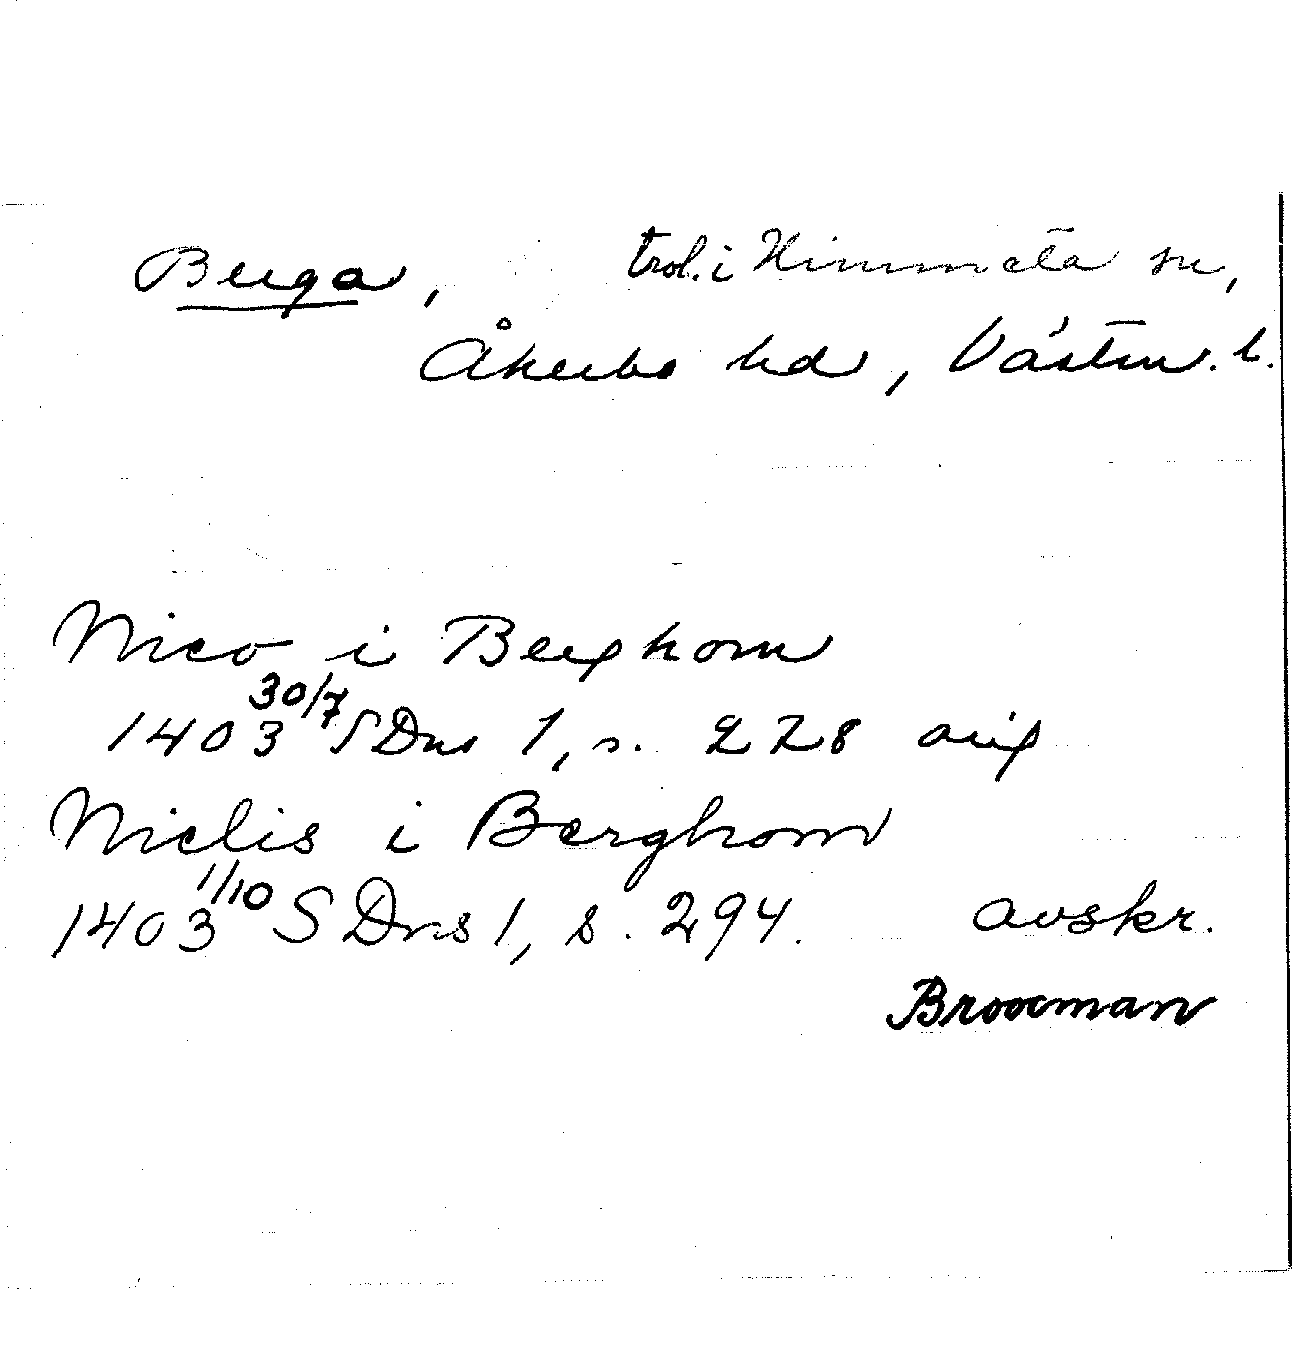 Berga, trol. i Himmeta sn,
Åkerbo hd, Västm. l.
Nico i Berghom
1403 30/7 SDns 1, s. 228 orig
Niclis i Berghom
1403 1/10 SDns 1, s. 294. avskr.
Brooxman